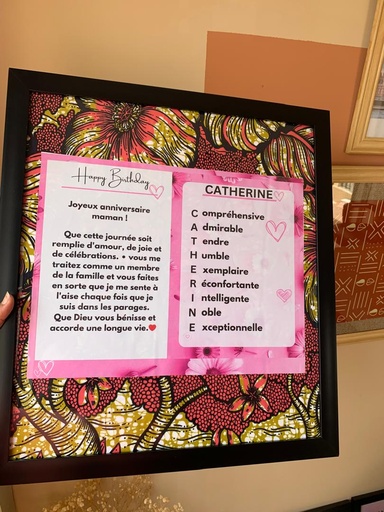 Happy Birthday
Joyeux anniversaire
maman !
Que cette journée soit
remplie d'amour, de joie et
de célébrations. • vous me
traitez comme un membre
de la famille et vous faites
en sorte que je me sente à
l'aise chaque fois que je
suis dans les parages.
Que Dieu vous bénisse et
accorde une longue vie.❤️
CATHERINE
Compréhensive
Admirable
Tendre
Humble
Exemplaire
Réconfortante
Intelligente
Noble
Exceptionnelle